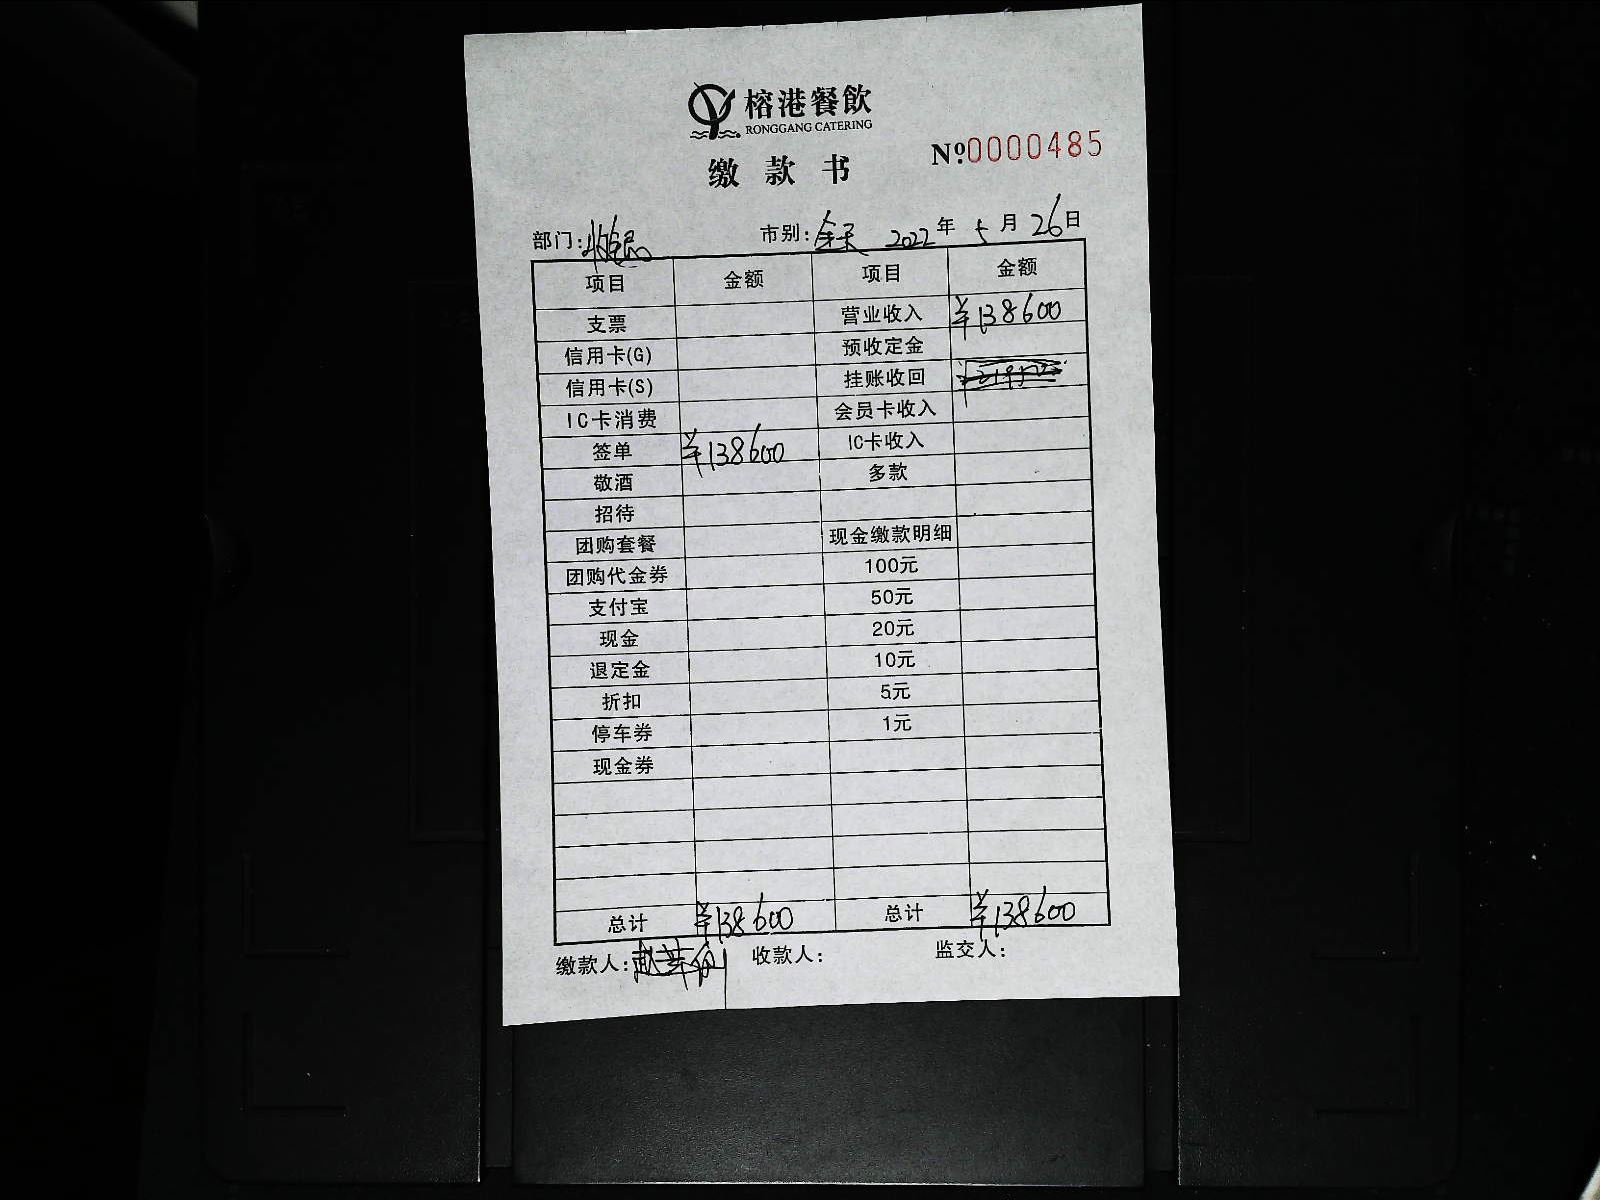 榕港餐飲
RONGGANG CATERING
缴款书
Nº:0000485
部门:收银 市别:全天 2022年5月26日
项目 金额 项目 金额
支票 营业收入 ¥138600
信用卡(G) 预收定金
信用卡(S) 挂账收回
IC卡消费 会员卡收入
签单 ¥138600 IC卡收入
敬酒 多款
招待
团购套餐 现金缴款明细
团购代金券 100元
支付宝 50元
现金 20元
退定金 10元
折扣 5元
停车券 1元
现金券
总计 ¥138600 总计 ¥138600
缴款人: 收款人: 监交人: